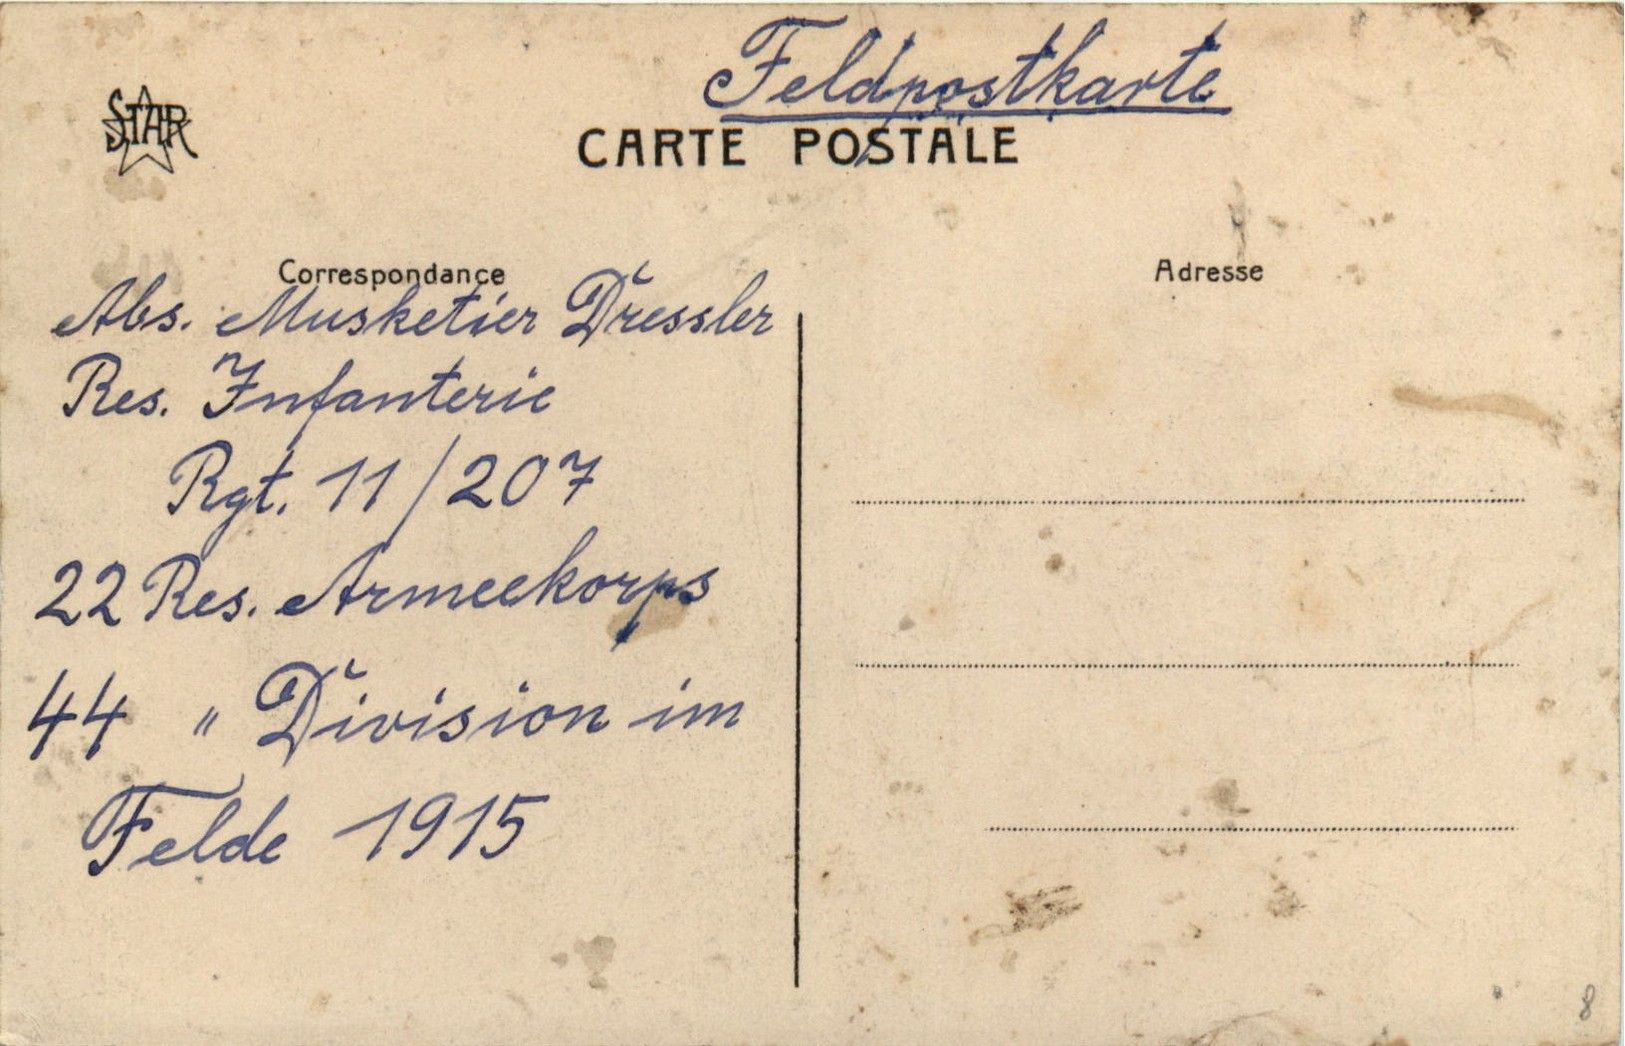 Feldpostkarte
STAR
CARTE POSTALE
Correspondance
Adresse
Abs. Musketier Dressler
Res. Infanterie
Rgt. 11/207
22 Res. Armeekorps
44 " Division im
Felde 1915
8